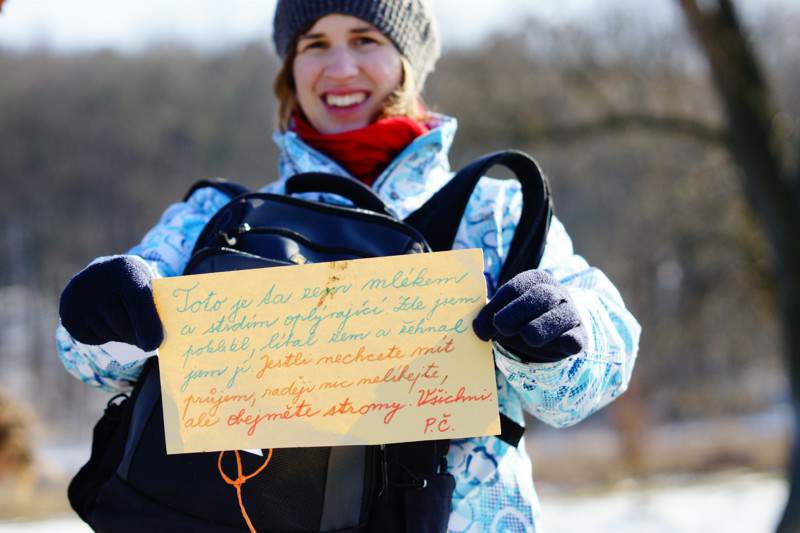 Toto je ta zem mlékem
a strdím oplývající Zde jsem
poklekl, líbal zem a žehnal
jsem jí. Jestli nechcete mít
průjem, raději nic nelíbejte,
ale obejměte stromy. Všichni.
P.Č.